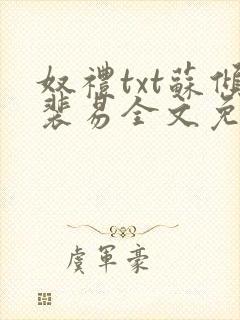 奴禮txt蘇傾
裴易全文免
虞軍豪